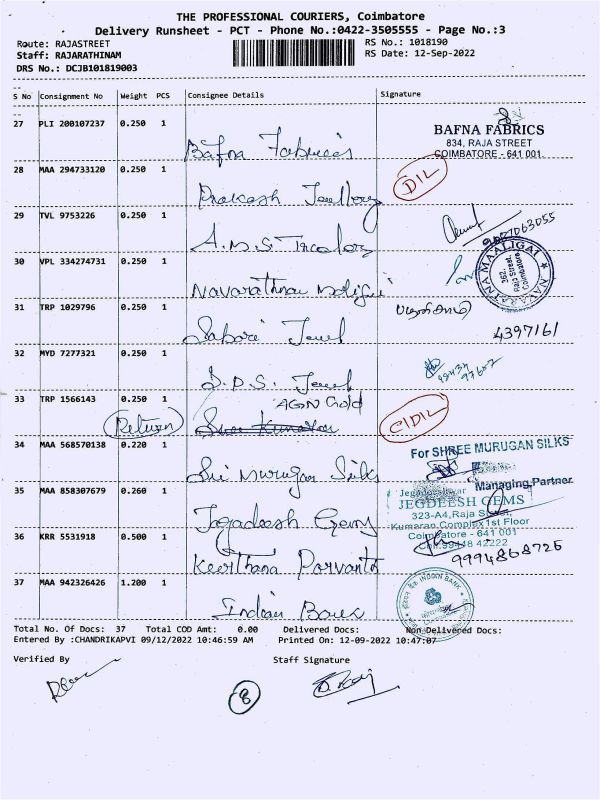 THE PROFESSIONAL COURIERS, Coimbatore
Delivery Runsheet - PCT - Phone No.:0422-3505555 - Page No.:3
Route: RAJASTREET
RS No.: 1018190
Staff: RAJARATHINAM
RS Date: 12-Sep-2022
DRS No.: DCJB101819003
S No Consignment No Weight PCS Consignee Details Signature
27 PLI 200107237 0.250 1 Bafna Fabrics
BAFNA FABRICS
834, RAJA STREET
COIMBATORE - 641 001
28 MAA 294733120 0.250 1 Prakash Jewllery DIL
29 TVL 9753226 0.250 1 A.M.S.
9007063055
30 VPL 334274731 0.250 1 Navarathna
NAVARATNA MAALIGAI
262, Raja Street, Coimbatore
31 TRP 1029796 0.250 1 Sabari Jewel
4397161
32 MYD 7277321 0.250 1 S.D.S. Jewel
33 TRP 1566143 0.250 1 AGN Gold
Return
CIDIL
34 MAA 568570138 0.220 1 Sri Murugan Silks
For SHREE MURUGAN SILKS
Managing Partner
35 MAA 858307679 0.260 1 Jagadeesh Gems
JEGDEESH GEMS
323-A4, Raja Street,
Kumaran Complex 1st Floor
Coimbatore - 641 001
36 KRR 5531918 0.500 1 Keerthana
9994868726
37 MAA 942326426 1.200 1 Indian Bank
INDIAN BANK
Total No. Of Docs: 37 Total COD Amt: 0.00 Delivered Docs: Non Delivered Docs:
Entered By :CHANDRIKAPVI 09/12/2022 10:46:59 AM Printed On: 12-09-2022 10:47:07
Verified By Staff Signature
8